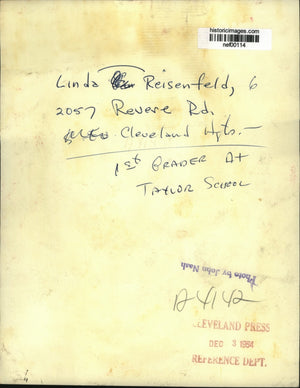 historicimages.com
nef00114
Linda Reisenfeld, 6
2057 Revere Rd.
Cleveland Hgts.—
1st GRADER AT
TAYLOR SCHOOL
Photo by John Nash
A4142
CLEVELAND PRESS
DEC 3 1964
REFERENCE DEPT.